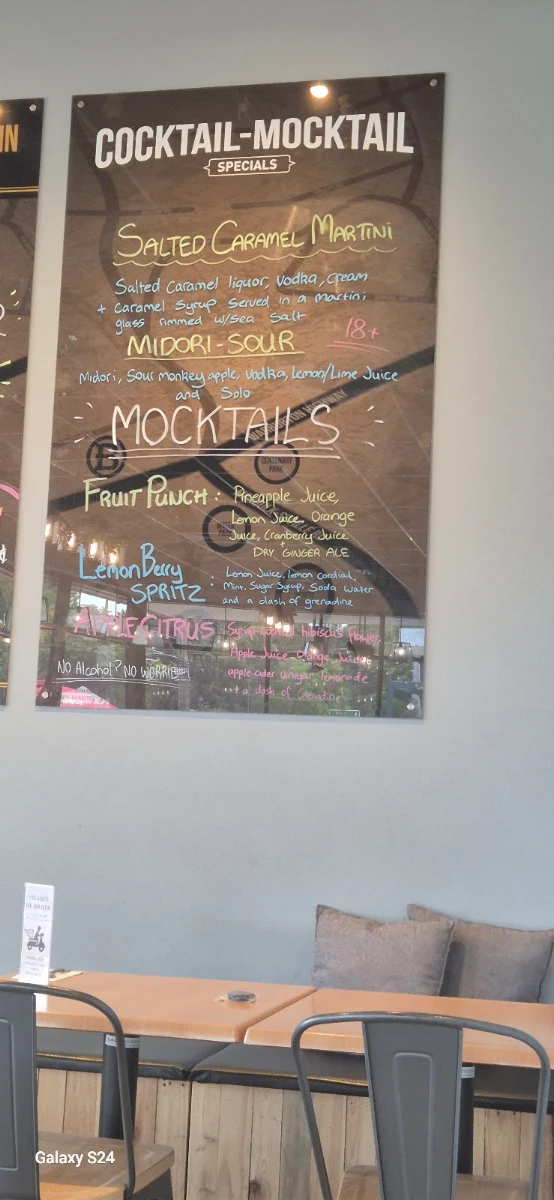 IN
COCKTAIL-MOCKTAIL
SPECIALS
SALTED CARAMEL MARTINI
Salted caramel liquor, Vodka, cream
+ caramel syrup served in a martini
glass rimmed w/sea salt
18+
MIDORI-SOUR
Midori, Sour monkey apple, Vodka, Lemon/Lime Juice
and Solo
MOCKTAILS
WARRINGTON HIGHWAY
CENTENARY
PARK
FRUIT PUNCH: Pineapple Juice,
Lemon Juice, Orange
Juice, Cranberry Juice
+
DRY GINGER ALE
Lemon Berry
SPRITZ : Lemon Juice, lemon cordial,
Mint, Sugar Syrup, Soda Water
and a dash of grenadine
APPLE CITRUS Syrup hibiscus flower,
Apple Juice Orange Juice
apple cider vinegar, lemonade
+ a dash of Grenadine
No Alcohol? NO WORRIES
Galaxy S24